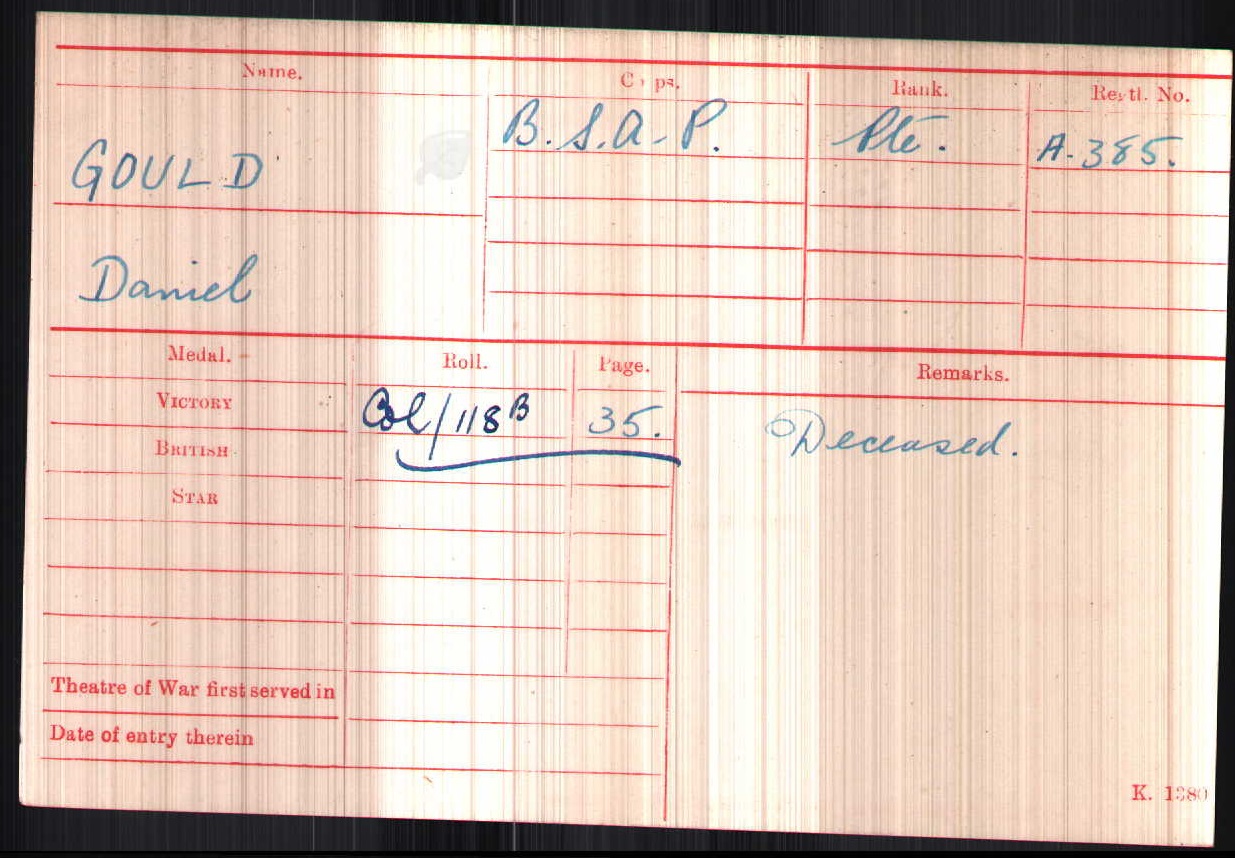 Name. Corps. Rank. Regtl. No.
GOULD B.S.A.P. Pte. A.385.
Daniel
Medal. Roll. Page. Remarks.
VICTORY Col/118B 35. Deceased.
BRITISH
STAR
Theatre of War first served in
Date of entry therein
K. 1380